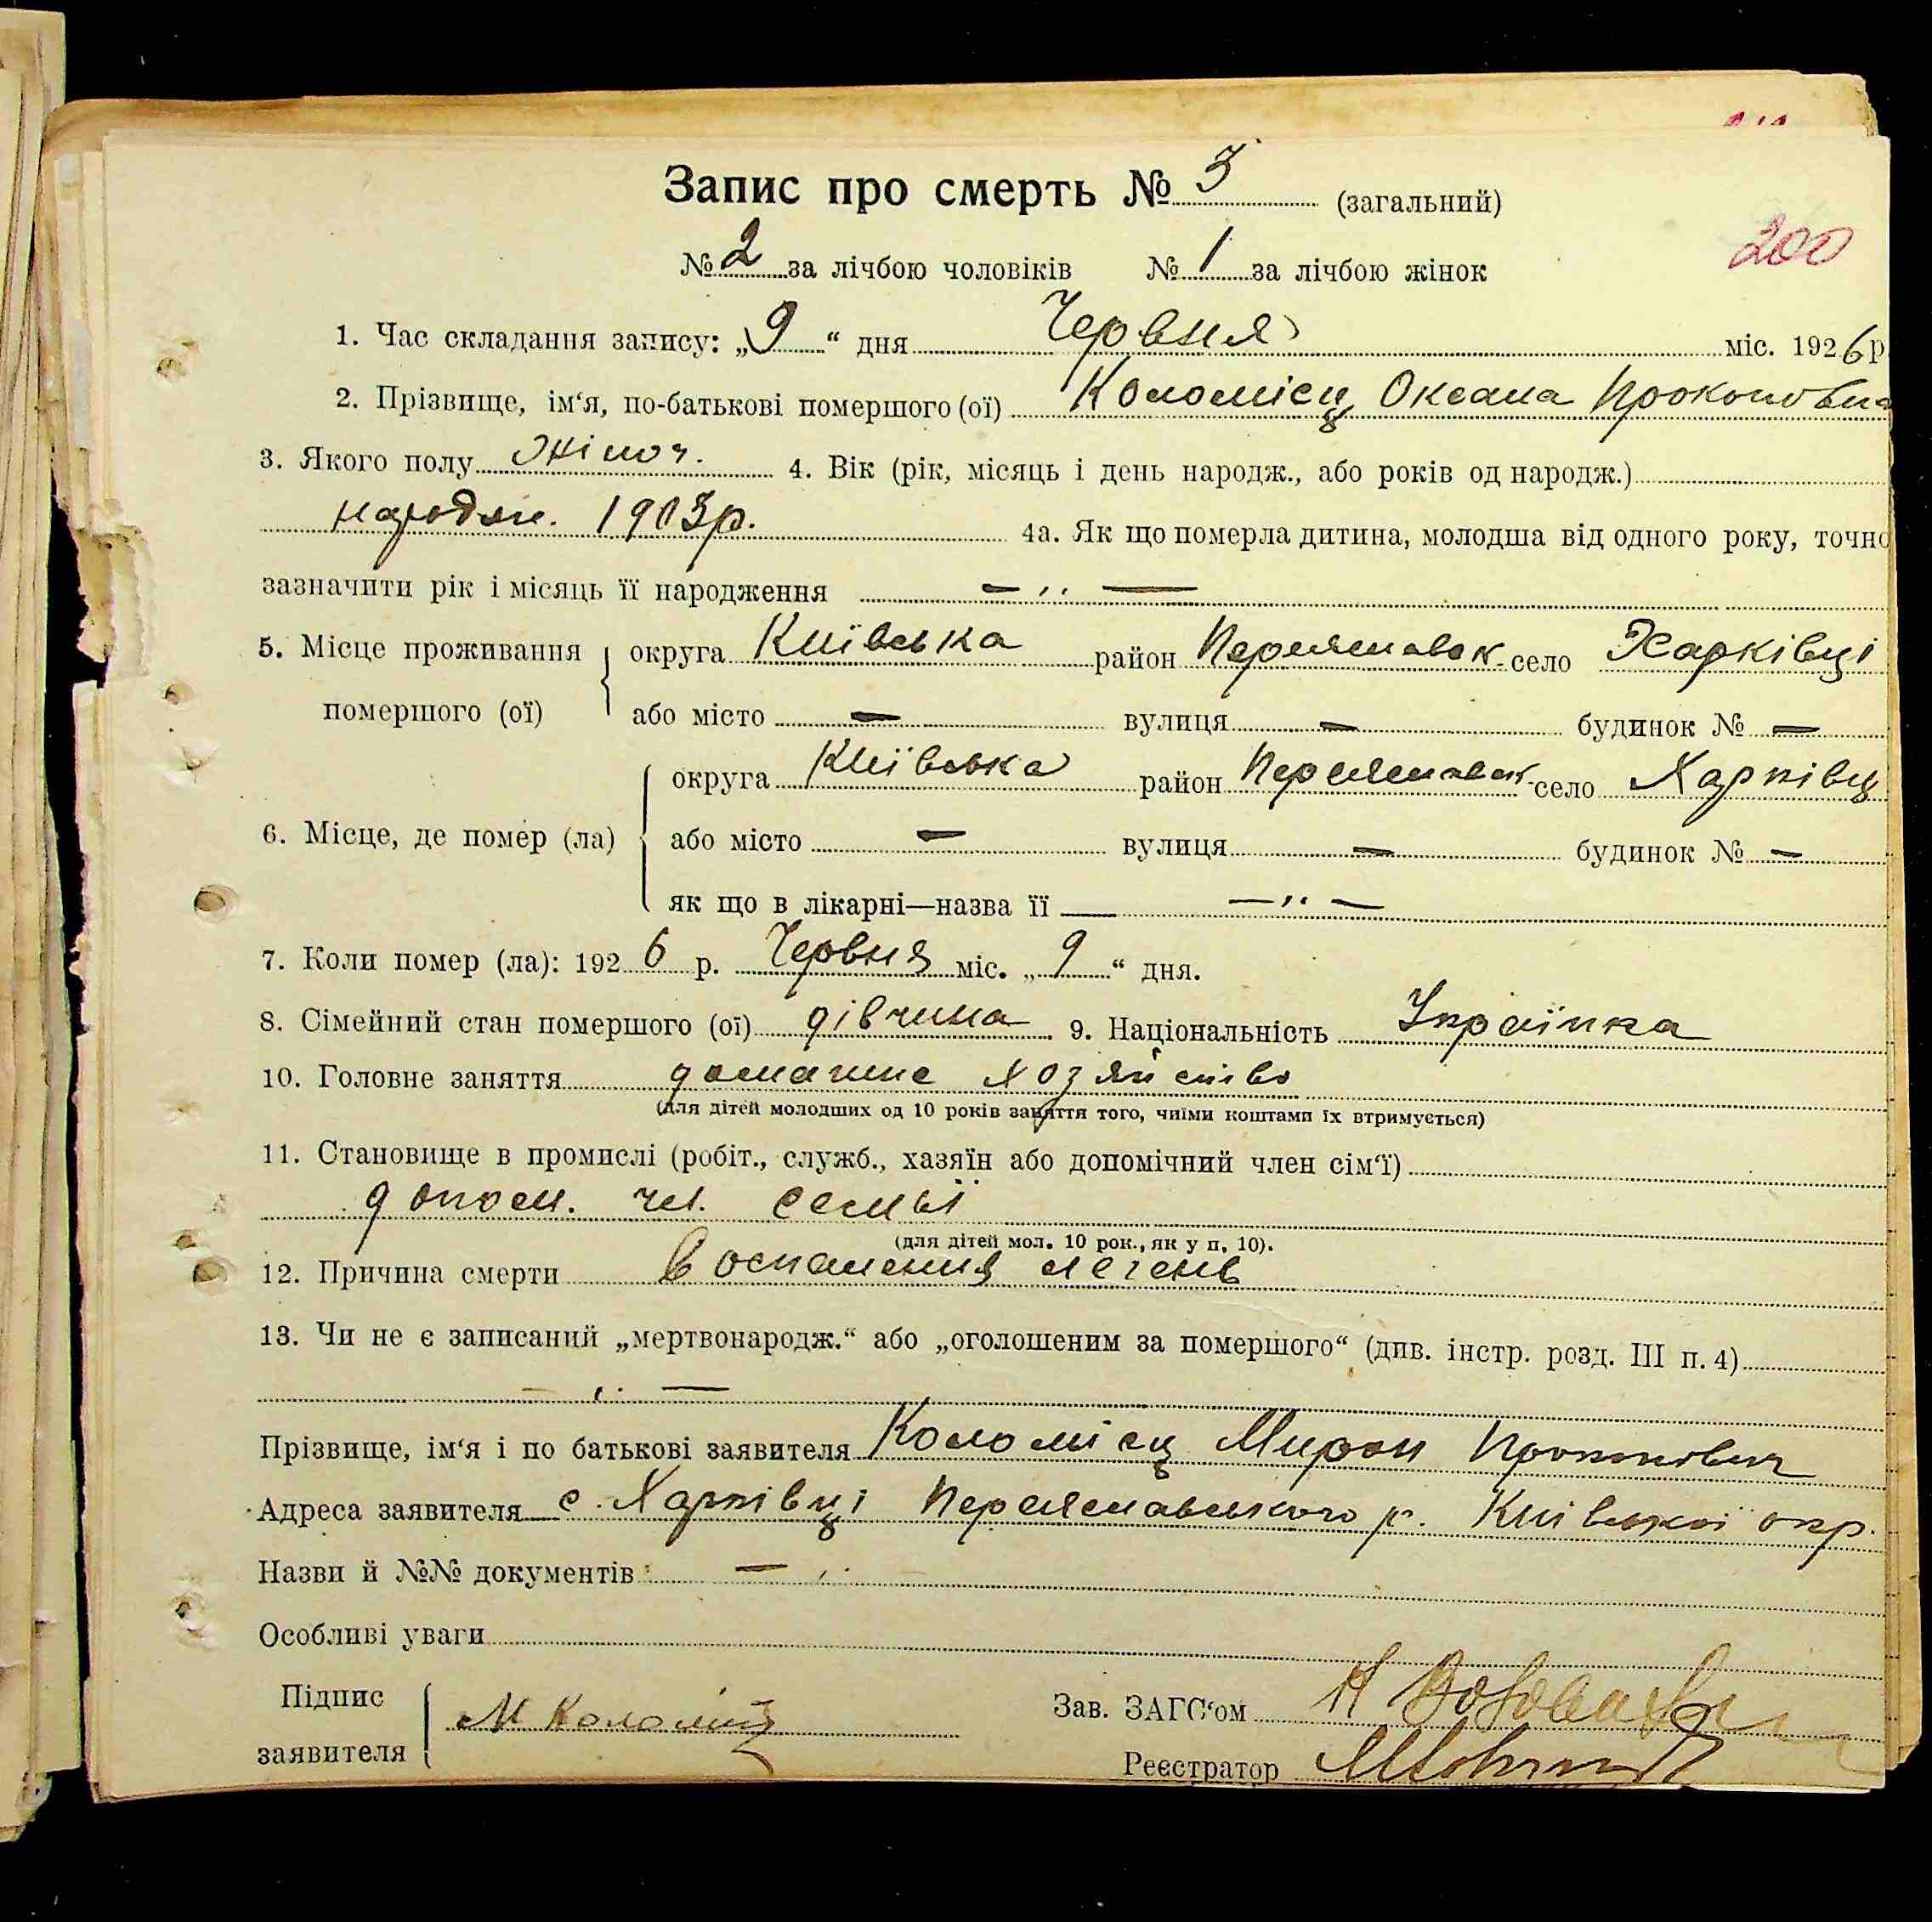 Запис про смерть № 3 (загальний)
200
№ 2 за лічбою чоловіків № 1 за лічбою жінок
1. Час складання запису: „9“ дня Червня міс. 1926 р
2. Прізвище, ім‘я, по-батькові помершого (ої) Коломієц Оксана Прокоповна
3. Якого полу Жіноч. 4. Вік (рік, місяць і день народж., або років од народж.)
народж. 1903р. 4а. Як що померла дитина, молодша від одного року, точно
зазначити рік і місяць її народження — ,, —
5. Місце проживання округа Київська район Переяславск. село Харківці
помершого (ої) або місто — вулиця — будинок № —
округа Київська район Переяславск. село Харківц
6. Місце, де помер (ла) або місто — вулиця — будинок № —
як що в лікарні—назва її — ,, —
7. Коли помер (ла): 1926 р. Червня міс. „9“ дня.
8. Сімейний стан помершого (ої) дівчина 9. Національність Украінка
10. Головне заняття домашнє хозяйство
(для дітей молодших од 10 років заняття того, чиїми коштами їх втримується)
11. Становище в промислі (робіт., служб., хазяїн або допомічний член сім‘ї)
допом. чл. семьї
(для дітей мол. 10 рок., як у п. 10).
12. Причина смерти воспаления легень
13. Чи не є записаний „мертвонародж.“ або „оголошеним за помершого“ (див. інстр. розд. III п. 4)
— ,, —
Прізвище, ім‘я і по батькові заявителя Коломієц Мирон Прокопович
Адреса заявителя с. Харківці Переяславського р. Київської окр.
Назви й №№ документів — ,,
Особливі уваги
Підпис заявителя М Коломієц
Зав. ЗАГС‘ом
Реєстратор